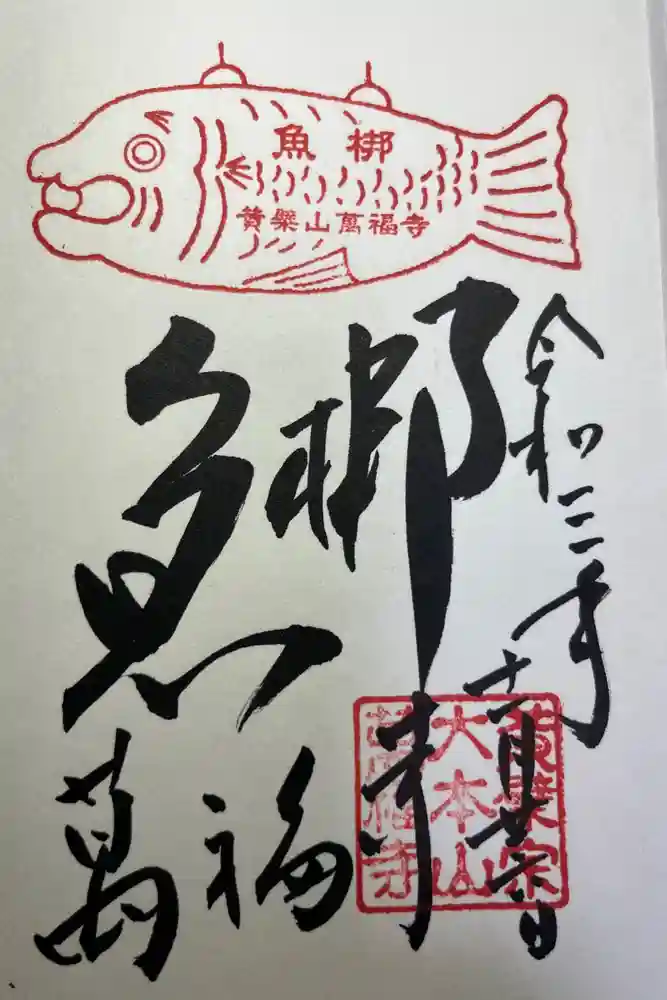 魚梆
黄檗山萬福寺
魚梆
萬福寺
令和三年十一月日
黄檗宗
大本山
萬福寺